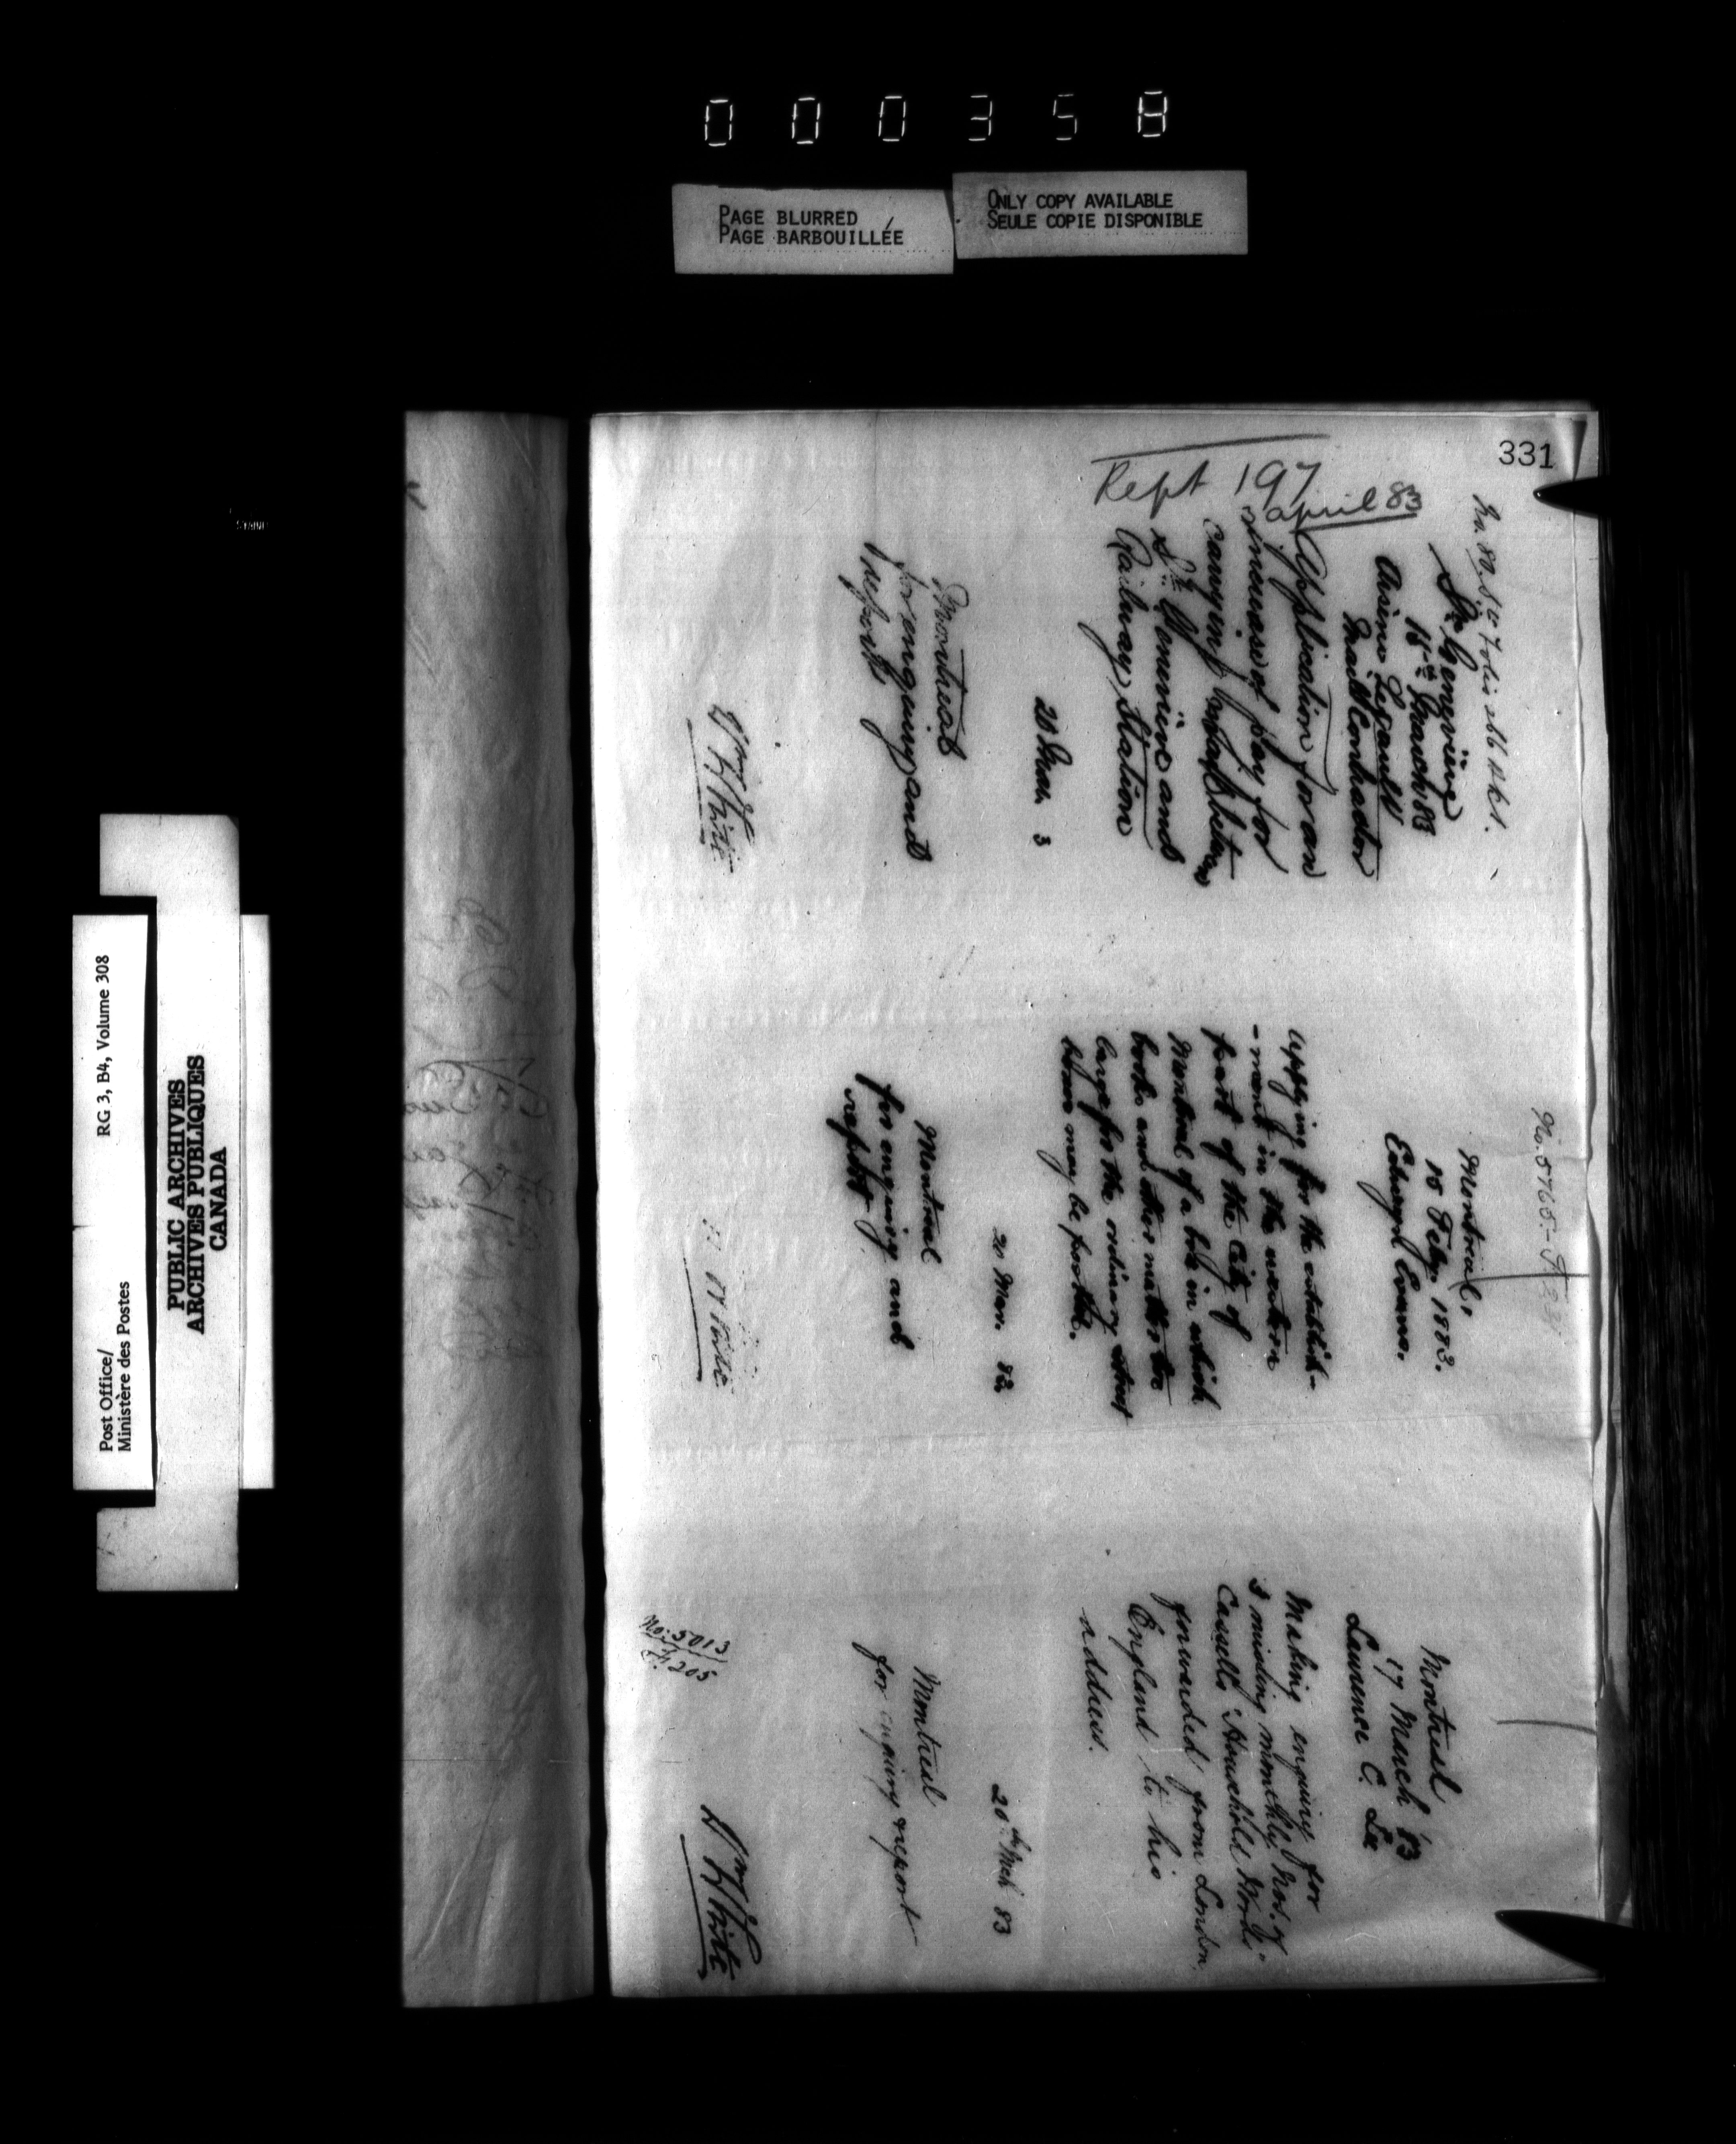 000358
PAGE BLURRED
PAGE BARBOUILLÉE
ONLY COPY AVAILABLE
SEULE COPIE DISPONIBLE
331
Rept 197
april 83
Ste Genevieve
March 83
Legault
Mail Contractor
Application for an
increase of pay for
carying mail between
Ste Genevieve and
Railway Station
Mar. 3
Montreal
for enquiry and
report
Wm White
Montreal,
15 Feby. 1883.
Edward Evans.
Applying for the establish-
-ment in the western
part of the City of
Montreal of a box in which
books and other matter too
large for the ordinary street
boxes may be posted.
20 Mar. 83
Montreal
for enquiry and
report
W White
Montreal
17 March '83
Lawrence C. Lee
Making enquiry for
3 missing monthly Nos. of
Cassells Household Words
forwarded from London
England to his
address.
20th Mch 83
Montreal
for enquiry & report
Wm White
No: 5013
F. 205
Post Office/
Ministère des Postes
RG 3, B4, Volume 308
PUBLIC ARCHIVES
ARCHIVES PUBLIQUES
CANADA